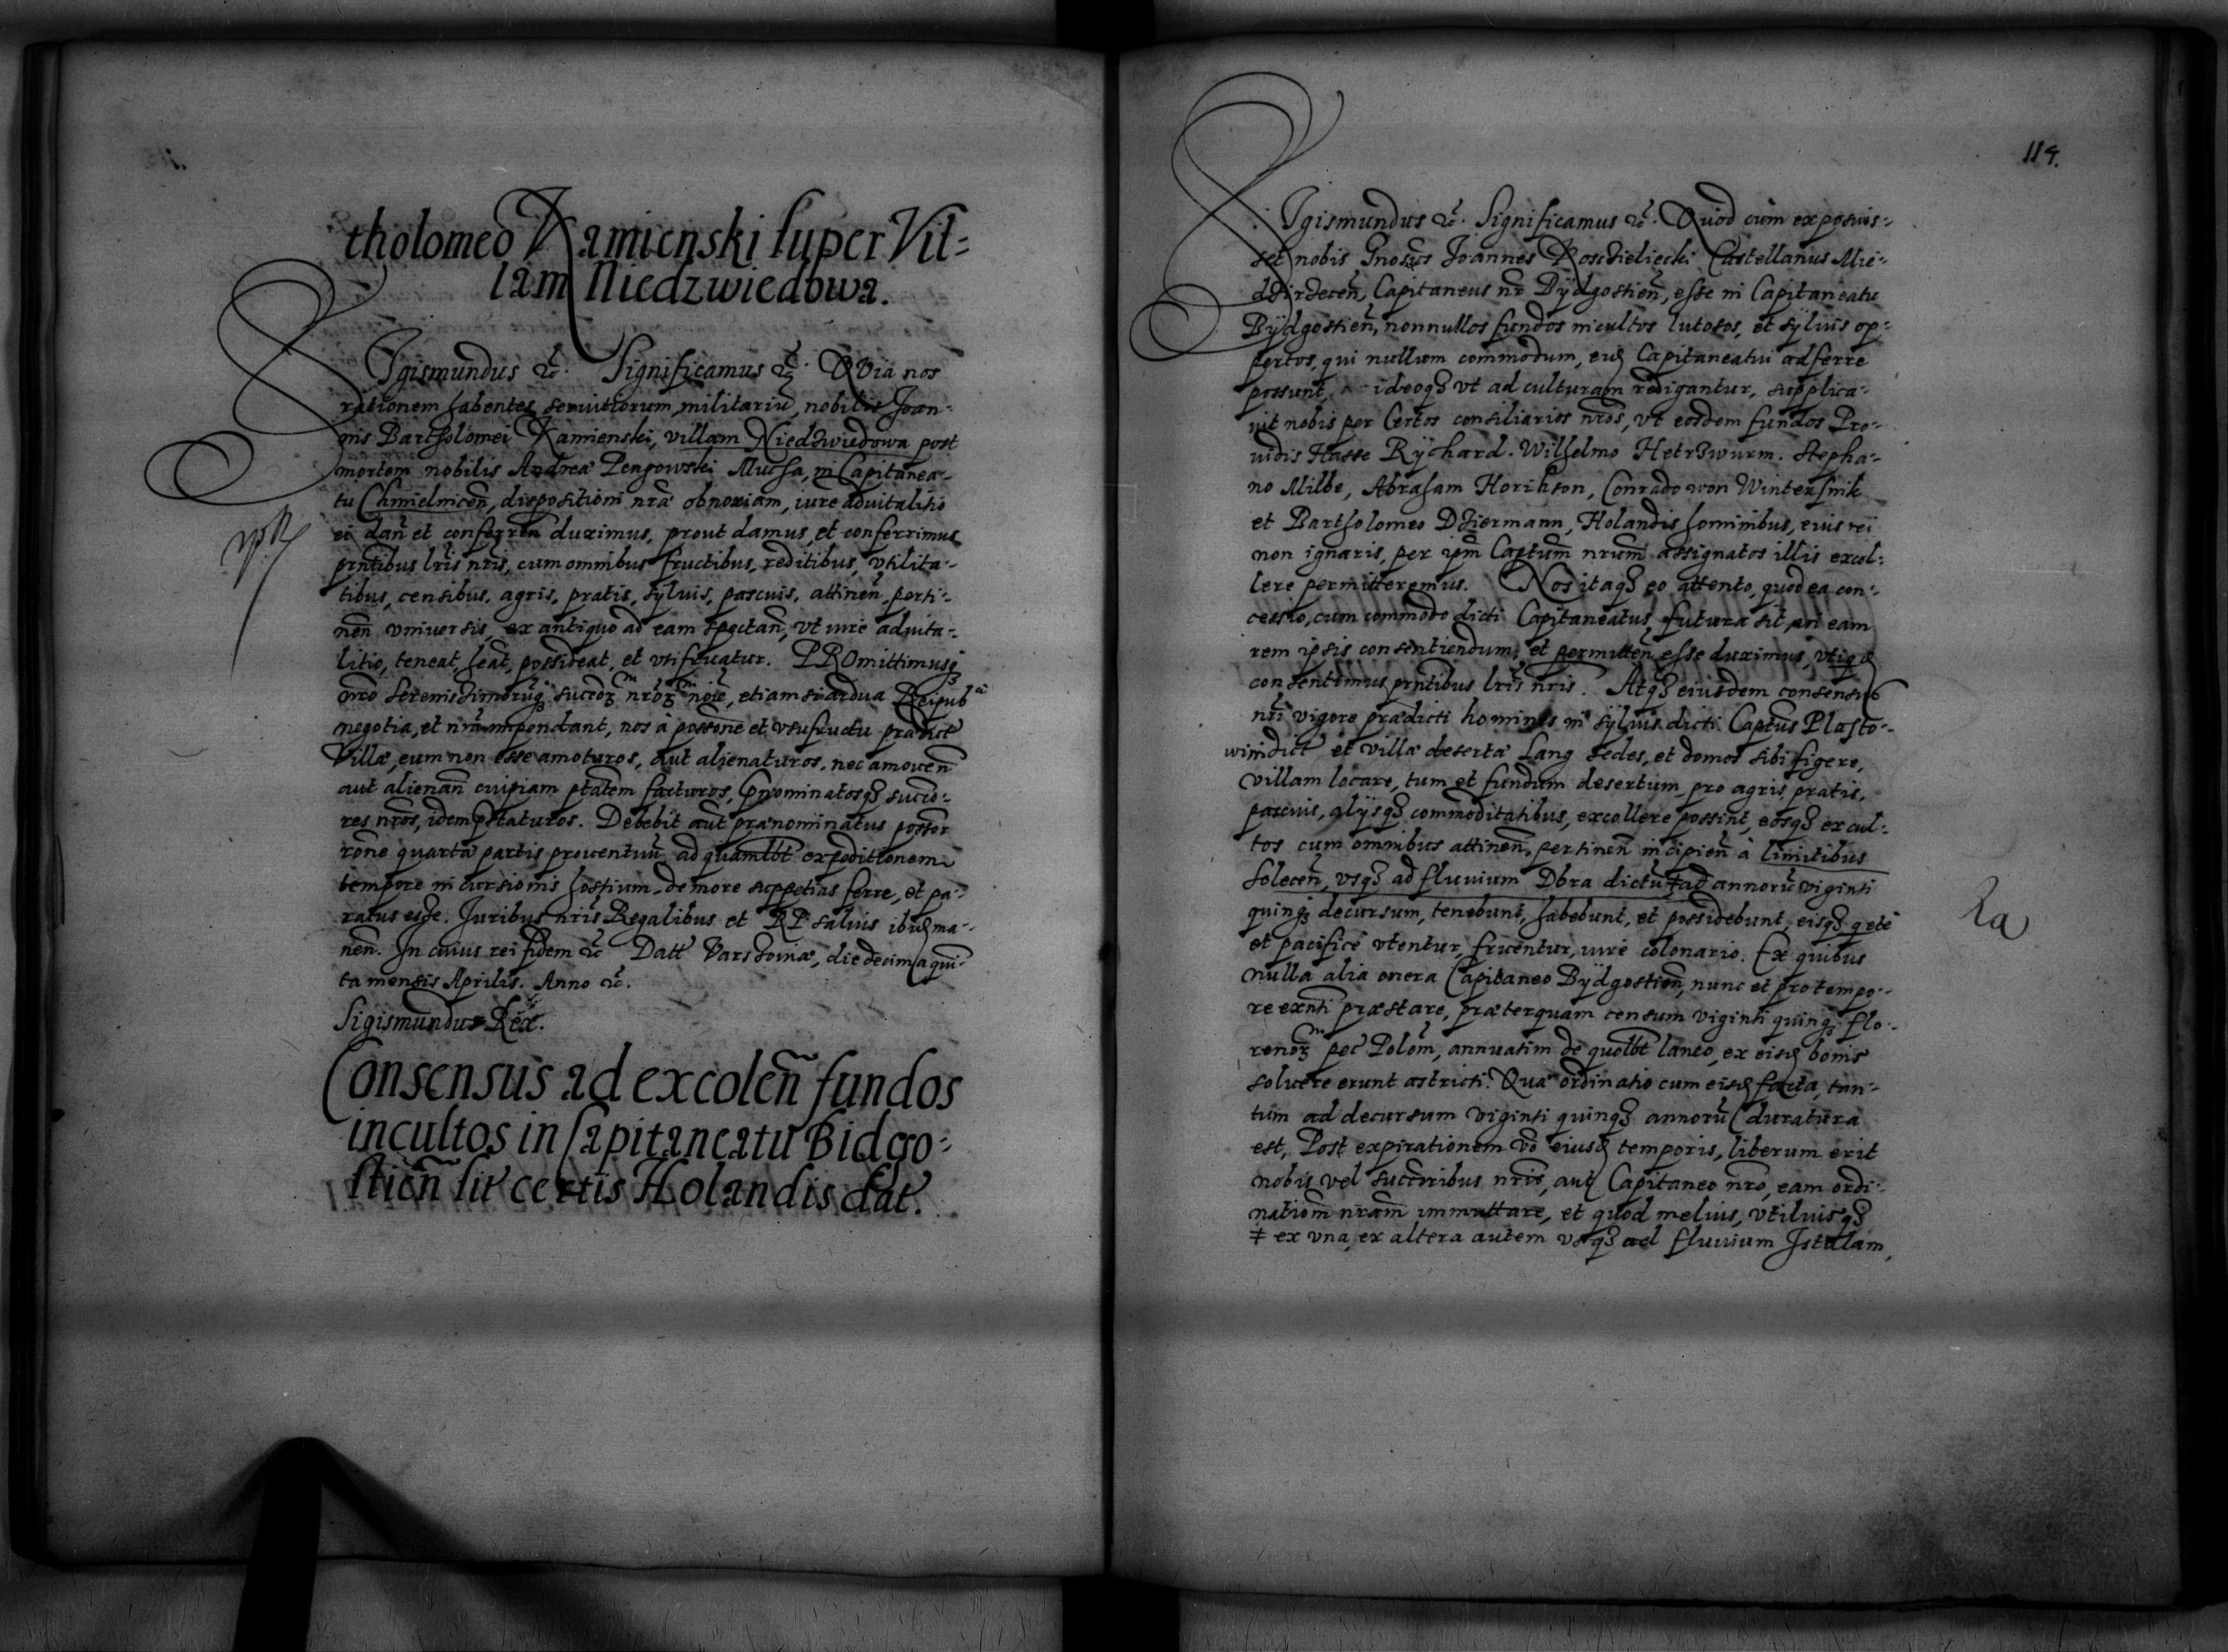 tholomeo Kamienski super Vil-
lam Niedzwiedowa.
Sigismundus &c. Significamus &c. Quia nos
rationem habentes seruitiorum militariũ, nobilis Joan-
nis Bartholomei Kamienski, villam Niedzwiedowa post
mortem nobilis Andreæ Pengowski Mucha, in Capitanea-
tu Chmielnicen̄, dispositioni nr̃æ obnoxiam, iure aduitalitio
ei dan̄ et conferren̄ duximus, prout damus, et conferrimus
pr̃ntibus lr̃is nr̃is, cum omnibus fructibus, reditibus, vtilita-
tibus, censibus, agris, pratis, syluis, pascuis, attinen̄, perti-
nen̄ vniuersis, ex antiquo ad eam spectan̄, vt iure aduita-
litio, teneat, heat, possideat, et vtifruatur. PROmittimusq3
nr̃o Serenissimorũq3 succor3 nr̃or3 noĩe, etiam si ardua Reipub
negotia, et nr̃a impendant, nos à possone et vsufructu prædict
Villæ, eum non esse amoturos, aut alienaturos, nec amouen̄
aut alienan̄ cuipiam ptatem facturos,
res nr̃os, idem pstaturos. Debebit aut̃ prænominatus possor
rõne quartæ partis prouentuũ ad quamlbt expeditionem
tempore incursionis hostium, de more suppetias ferre, et pa-
ratus esse. Juribus nr̃is Regalibus et RP. saluis ibidem ma-
nen̄. In cuius rei fidem &c Datt Varsoviæ, die decima quin-
ta mensis Aprilis. Anno &c.
Sigismundus Rex.
Consensus ad excolen̄ fundos
incultos in Capitaneatu Bidgo-
stien̄ sit certis Holandis dat.
114.
Sigismundus &c. Significamus &c. Quod cum exposuis-
set nobis Gnosus Joannes Koscieliecki Castellanus Mie-
dzirdecen̄, Capitaneus nr̃ Bÿdgostien̄, esse in Capitaneatu
Bÿdgostien̄, nonnullos fundos incultos lutosos, et sÿluis op-
pertos, qui nullum commodum, eid Capitaneatui adferre
possunt, ideoq3 vt ad culturam redigantur, supplica-
uit nobis per Certos consiliarios nr̃os, vt eosdem fundos Pro-
uidis Hasse Rÿchard. Wilhelmo Hetrzwurm. Stepha-
no Milbe, Abraham Horikson, Conrado won Winterhnik
et Bartholomeo Dziermann, Holandis hominibus, eius rei
non ignaris, per ipm̃ Captum̃ nrum̃ assignatos illis excol-
lere permitteremus. Nos itaq3 eo attento, quod ea con-
cessio, cum commodo dicti Capitaneatus futura sit, in eam
rem ipsis consentiendum, et permitten̄ esse duximus, vtiq3
consentimus pr̃ntibus lr̃is nr̃is. Atq3 eiusdem consensus
nr̃i vigore prædicti homines in sÿluis dicti Captus Plosto-
win dict et villæ desertæ Lang sedes, et domos sibi figere,
villam locare, tum et fundum desertum pro agris pratis,
pascuis, alÿsq3 commoditatibus, excollere possint, eosq3 excul-
tos cum omnibus attinen̄, pertinen̄ incipien̄ à limitibus
Solecen̄, vsq3 ad fluuium Dbra dictũ ‡ ad annorũ viginti
quinq3 decursum, tenebunt, habebunt, et possidebunt, eisq3 qete
et pacifice vtentur, fruentur, iure colonario. Ex quibus
nulla alia onera Capitaneo Bÿdgostien̄, nunc et pro tempo-
re exnti præstare, præterquam censum viginti quinq3 flo-
renor3 pec Polom̃, annuatim de quolbt laneo, ex eisd bonis
soluere erunt astricti. Quæ ordinatio cum eisd facta, tan-
tum ad decursum viginti quinq3 annorũ duratura
est, Post expirationem vo eiusd temporis, liberum erit
nobis vel succoribus nr̃is, aut Capitaneo nr̃o, eam ordi-
nationm̃ nram̃ immuttare, et quod melius, vtiliusq3
‡ ex vna, ex altera autem vsq3 ad fluuium Istulam,